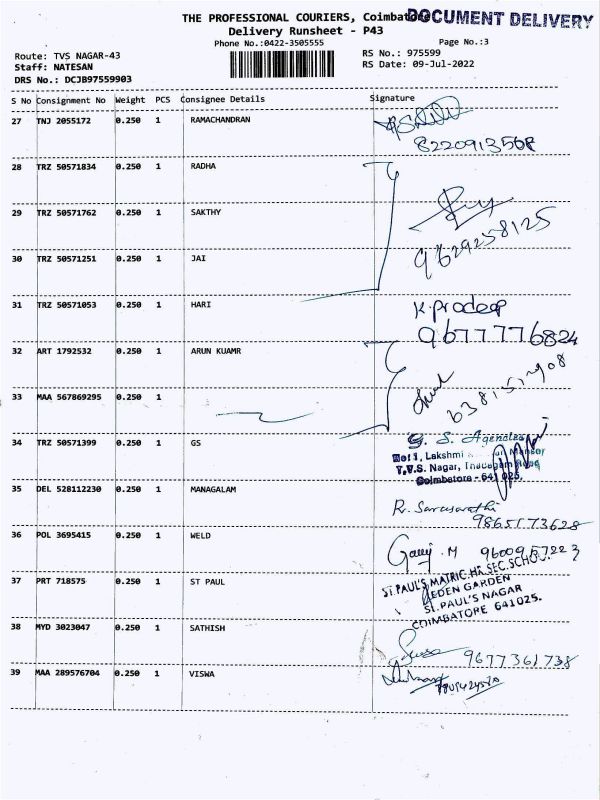 THE PROFESSIONAL COURIERS, Coimbatore
DOCUMENT DELIVERY
Delivery Runsheet - P43
Phone No.:0422-3505555
Page No.:3
Route: TVS NAGAR-43
RS No.: 975599
Staff: NATESAN
RS Date: 09-Jul-2022
DRS No.: DCJB97559903
S No Consignment No Weight PCS Consignee Details Signature
27 TNJ 2055172 0.250 1 RAMACHANDRAN
8220913568
28 TRZ 50571834 0.250 1 RADHA
29 TRZ 50571762 0.250 1 SAKTHY
9629258125
30 TRZ 50571251 0.250 1 JAI
31 TRZ 50571053 0.250 1 HARI K.pradeep
9677776824
32 ART 1792532 0.250 1 ARUN KUAMR
33 MAA 567869295 0.250 1
34 TRZ 50571399 0.250 1 GS G. S. Agencies
No: 1, Lakshmi
T.V.S. Nagar,
Coimbatore - 641 025.
35 DEL 528112230 0.250 1 MANAGALAM
9865173628
36 POL 3695415 0.250 1 WELD
M 9600957223
37 PRT 718575 0.250 1 ST PAUL ST.PAUL'S MATRIC.HR.SEC.SCHOOL
EDEN GARDEN
ST.PAUL'S NAGAR
COIMBATORE 641025.
38 MYD 3023047 0.250 1 SATHISH
9677361738
39 MAA 289576704 0.250 1 VISWA